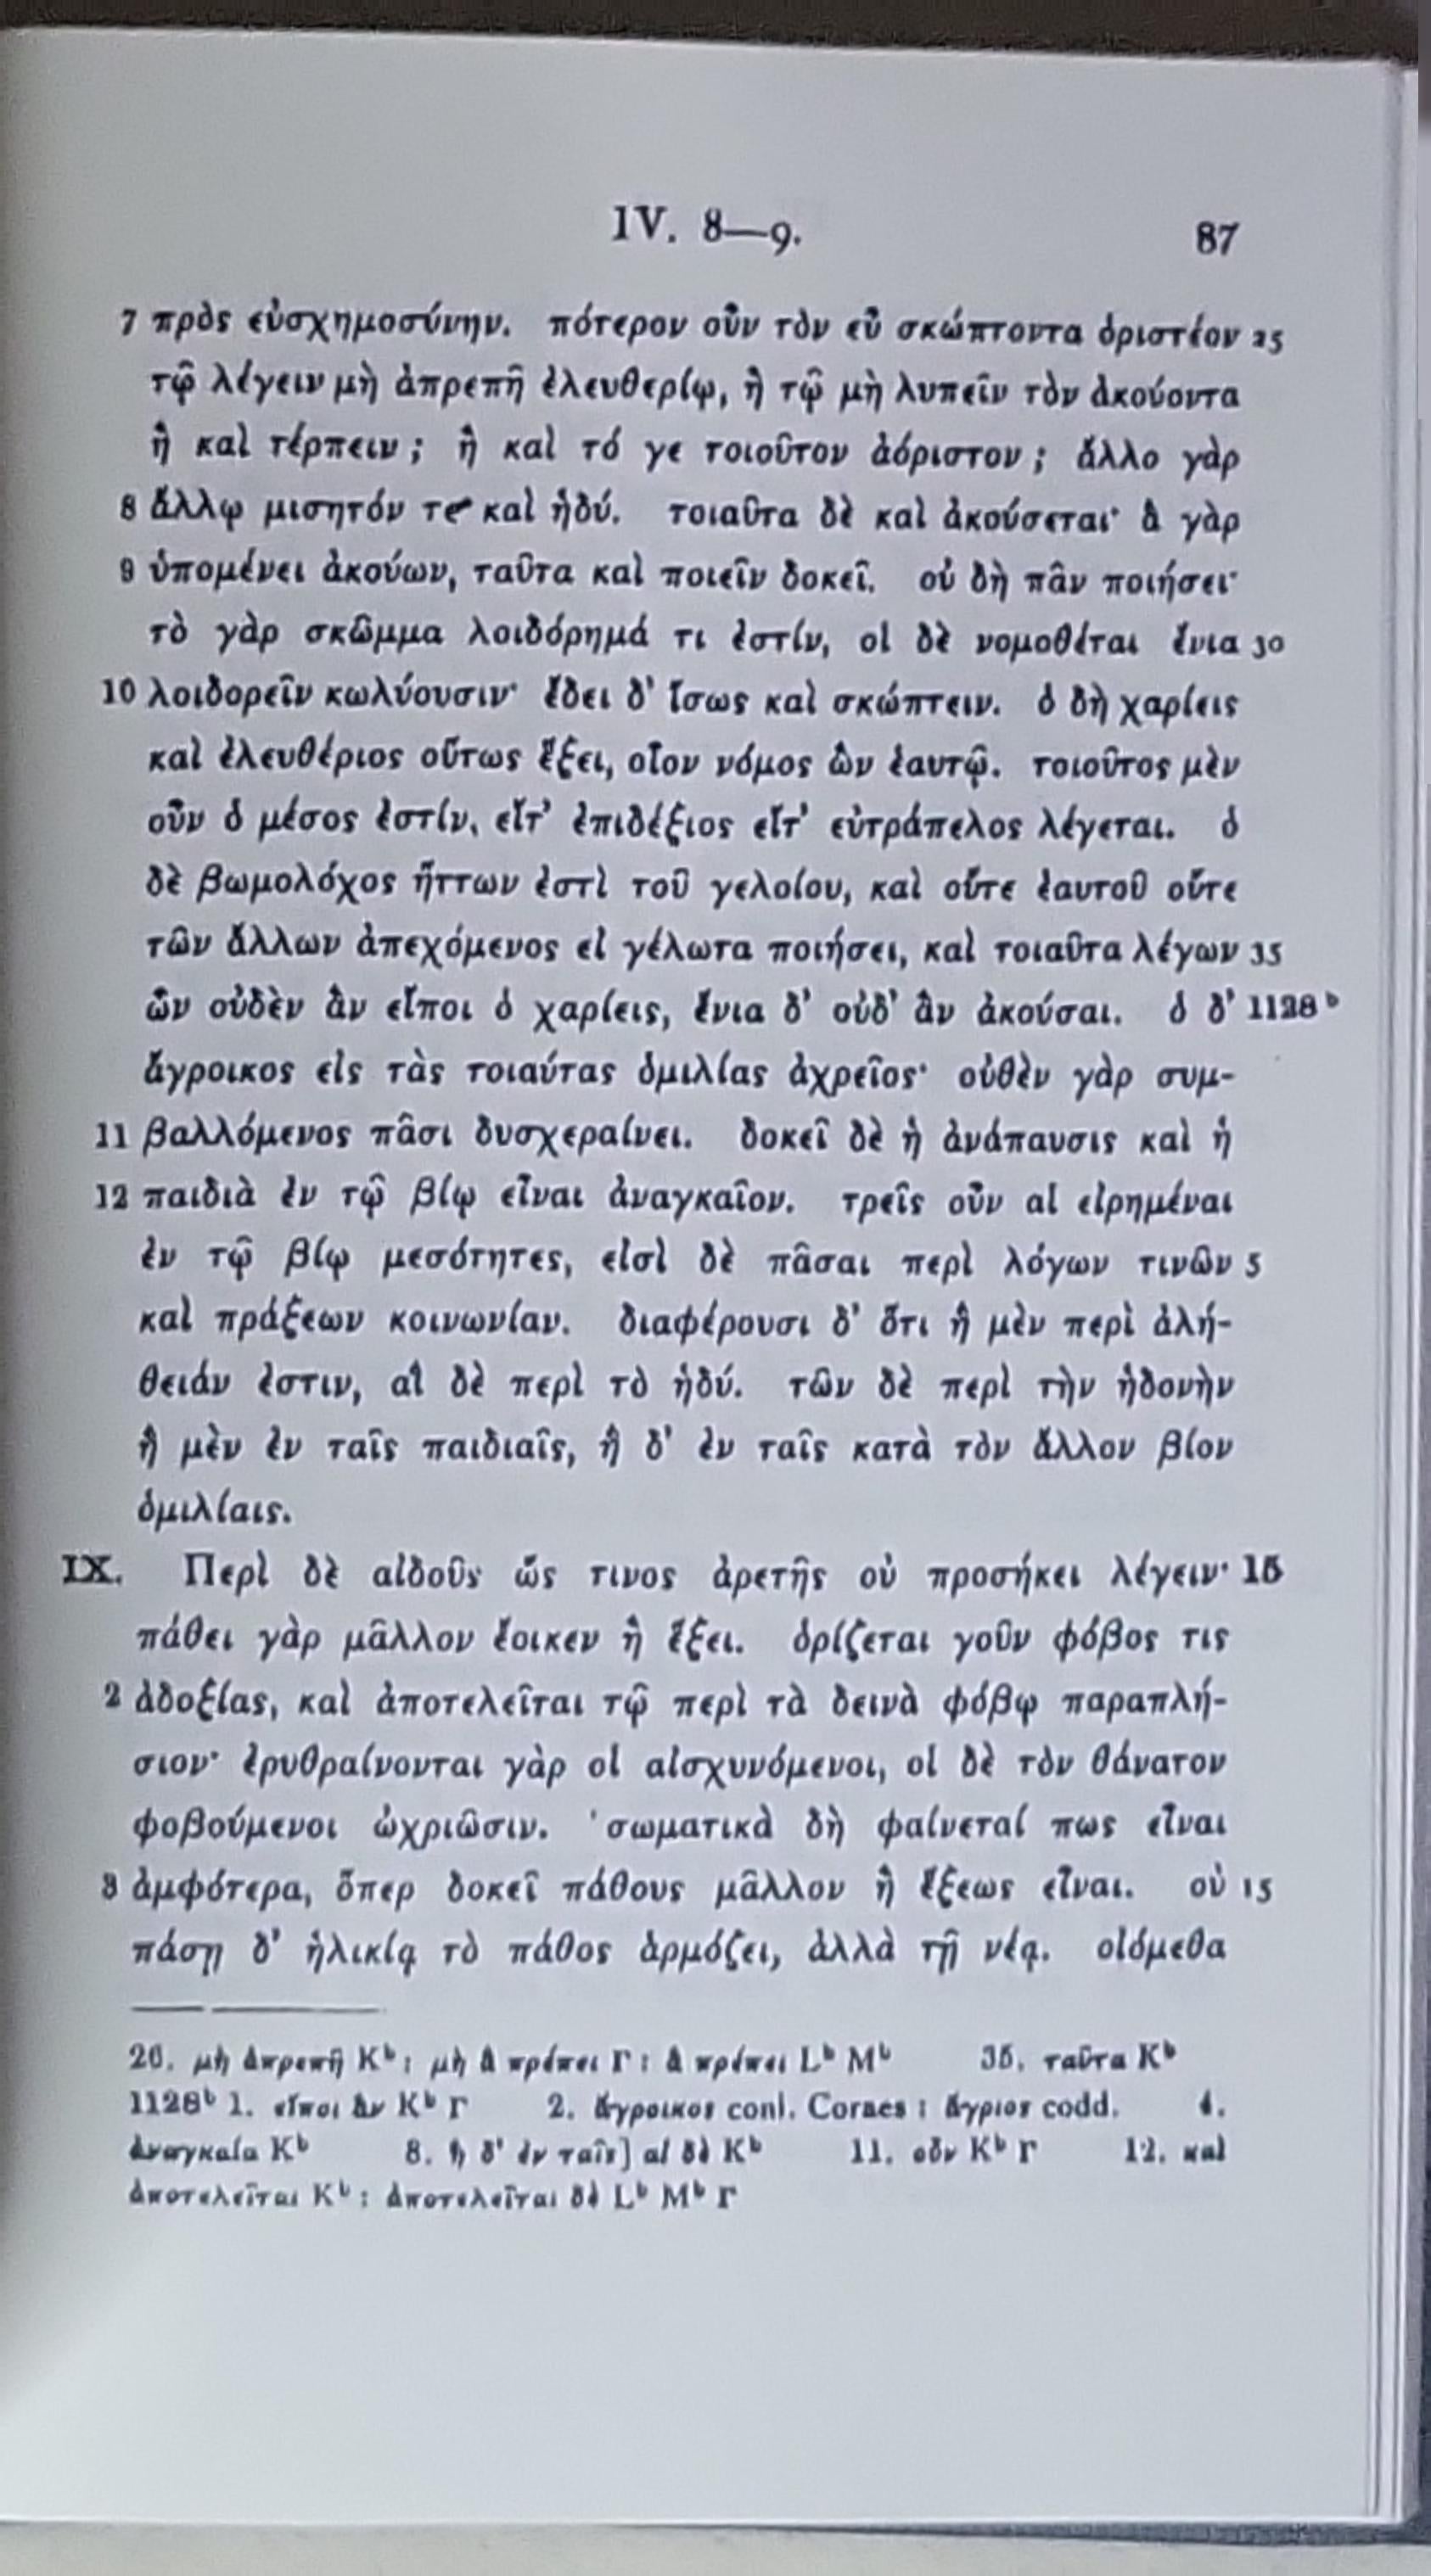 IV. 8—9. 87
7 πρὸς εὐσχημοσύνην. πότερον οὖν τὸν εὖ σκώπτοντα ὁριστέον 25
τῷ λέγειν μὴ ἀπρεπῆ ἐλευθερίῳ, ἢ τῷ μὴ λυπεῖν τὸν ἀκούοντα
ἢ καὶ τέρπειν; ἢ καὶ τό γε τοιοῦτον ἀόριστον; ἄλλο γὰρ
8 ἄλλῳ μισητόν τε καὶ ἡδύ. τοιαῦτα δὲ καὶ ἀκούσεται· ἃ γὰρ
9 ὑπομένει ἀκούων, ταῦτα καὶ ποιεῖν δοκεῖ. οὐ δὴ πᾶν ποιήσει·
τὸ γὰρ σκῶμμα λοιδόρημά τι ἐστίν, οἱ δὲ νομοθέται ἔνια 30
10 λοιδορεῖν κωλύουσιν· ἔδει δ' ἴσως καὶ σκώπτειν. ὁ δὴ χαρίεις
καὶ ἐλευθέριος οὕτως ἕξει, οἷον νόμος ὢν ἑαυτῷ. τοιοῦτος μὲν
οὖν ὁ μέσος ἐστίν, εἴτ' ἐπιδέξιος εἴτ' εὐτράπελος λέγεται. ὁ
δὲ βωμολόχος ἥττων ἐστὶ τοῦ γελοίου, καὶ οὔτε ἑαυτοῦ οὔτε
τῶν ἄλλων ἀπεχόμενος εἰ γέλωτα ποιήσει, καὶ τοιαῦτα λέγων 35
ὧν οὐδὲν ἂν εἴποι ὁ χαρίεις, ἔνια δ' οὐδ' ἂν ἀκούσαι. ὁ δ' 1128 ᵇ
ἄγροικος εἰς τὰς τοιαύτας ὁμιλίας ἀχρεῖος· οὐθὲν γὰρ συμ-
11 βαλλόμενος πᾶσι δυσχεραίνει. δοκεῖ δὲ ἡ ἀνάπαυσις καὶ ἡ
12 παιδιὰ ἐν τῷ βίῳ εἶναι ἀναγκαῖον. τρεῖς οὖν αἱ εἰρημέναι
ἐν τῷ βίῳ μεσότητες, εἰσὶ δὲ πᾶσαι περὶ λόγων τινῶν 5
καὶ πράξεων κοινωνίαν. διαφέρουσι δ' ὅτι ἣ μὲν περὶ ἀλή-
θειάν ἐστιν, αἳ δὲ περὶ τὸ ἡδύ. τῶν δὲ περὶ τὴν ἡδονὴν
ἣ μὲν ἐν ταῖς παιδιαῖς, ἣ δ' ἐν ταῖς κατὰ τὸν ἄλλον βίον
ὁμιλίαις.
IX. Περὶ δὲ αἰδοῦς ὥς τινος ἀρετῆς οὐ προσήκει λέγειν· 15
πάθει γὰρ μᾶλλον ἔοικεν ἢ ἕξει. ὁρίζεται γοῦν φόβος τις
2 ἀδοξίας, καὶ ἀποτελεῖται τῷ περὶ τὰ δεινὰ φόβῳ παραπλή-
σιον· ἐρυθραίνονται γὰρ οἱ αἰσχυνόμενοι, οἱ δὲ τὸν θάνατον
φοβούμενοι ὠχριῶσιν. σωματικὰ δὴ φαίνεταί πως εἶναι
3 ἀμφότερα, ὅπερ δοκεῖ πάθους μᾶλλον ἢ ἕξεως εἶναι. οὐ 15
πάσῃ δ' ἡλικίᾳ τὸ πάθος ἁρμόζει, ἀλλὰ τῇ νέᾳ. οἰόμεθα
26. μὴ ἀπρεπῆ Kᵇ: μὴ ἃ πρέπει Γ: ἃ πρέπει Lᵇ Mᵇ 35. ταῦτα Kᵇ
1128ᵇ 1. εἴποι ἂν Kᵇ Γ 2. ἄγροικος coni. Coraes: ἄγριος codd. 4.
ἀναγκαία Kᵇ 8. ἣ δ' ἐν ταῖς] αἱ δὲ Kᵇ 11. οὖν Kᵇ Γ 12. καὶ
ἀποτελεῖται Kᵇ: ἀποτελεῖται δὲ Lᵇ Mᵇ Γ